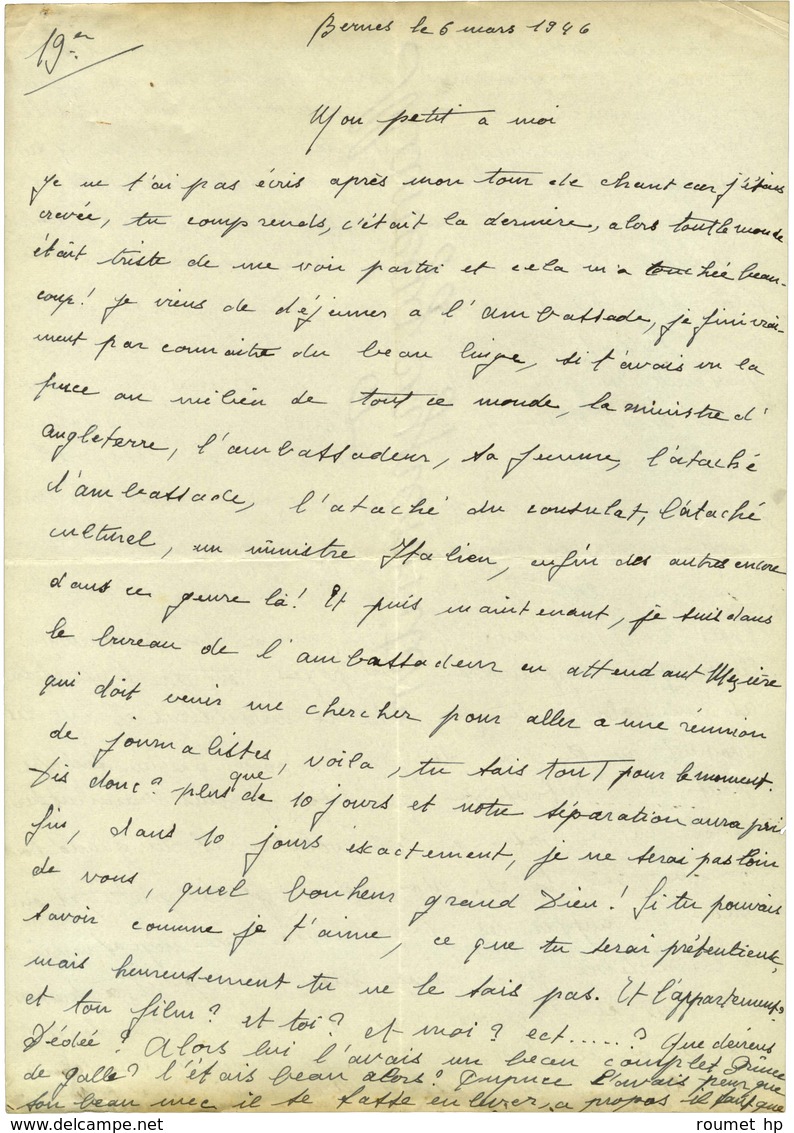 19er
Bernes le 6 mars 1946
Mon petit a moi
Je ne t'ai pas écris après mon tour de chant car j'étais
crevée, tu comprends, c'était la dernière, alors tout le monde
était triste de me voir partir et cela m'a touchée beau-
coup! je viens de déjeuner a l'ambassade, je fini vrai-
ment par connaitre du beau linge, si t'avais vu la
puce au milieu de tout ce monde, la ministre d'
angleterre, l'ambassadeur, sa femme, l'ataché
d'ambassade, l'ataché du consulat, l'ataché
culturel, un ministre Italien, enfin des autres encore
dans ce genre là! Et puis maintenant, je suis dans
le bureau de l'ambassadeur en attendant
qui doit venir me chercher pour aller a une réunion
de journalistes, voila, tu sais tout pour le moment.
Dis donc? plus que de 10 jours et notre séparation aura pri
fin, dans 10 jours exactement, je ne serai pas loin
de vous, quel bonheur grand Dieu! Si tu pouvais
savoir comme je t'aime, ce que tu serai prétentieux,
mais heureusement tu ne le sais pas. Et l'appartement?
et ton film? et toi? et moi? ect.....? Que deviens
Dédée? Alors lui l'avais un beau complet Prince
de galle? l'étais beau alors? l'avais peur que
son beau mec il se fasse enlever, a propos il faut que
roumet hp